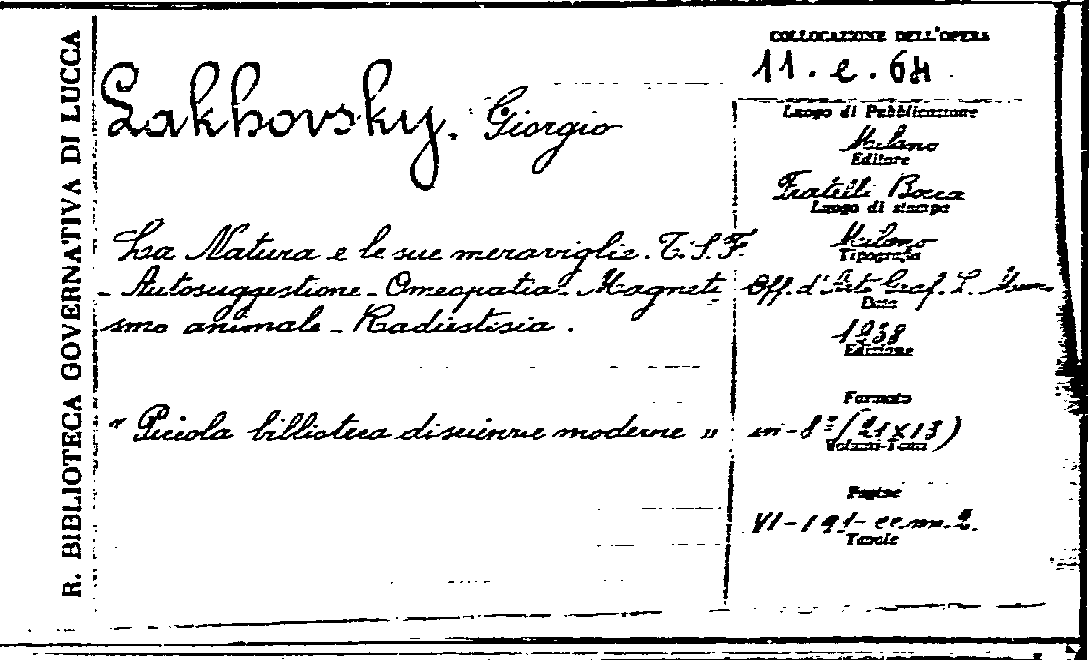 R. BIBLIOTECA GOVERNATIVA DI LUCCA
Lakhovsky. Giorgio
La Natura e le sue meraviglie. T.S.F.
- Autosuggestione - Omeopatia - Magneti
smo animale - Radiestesia.
" Piccola billioteca di scienze moderne "
COLLOCAZIONE DELL'OPERA
11. e. 64
Luogo di Pubblicazione
Milano
Editore
Fratelli Bocca
Luogo di stampa
Milano
Tipografia
Off. d'Arte Graf. L.
Data
1938
Edizione
Formato
in-8° (21x13)
Volumi-Tomi
Pagine
VI-191- cc. nn. 2.
Tavole